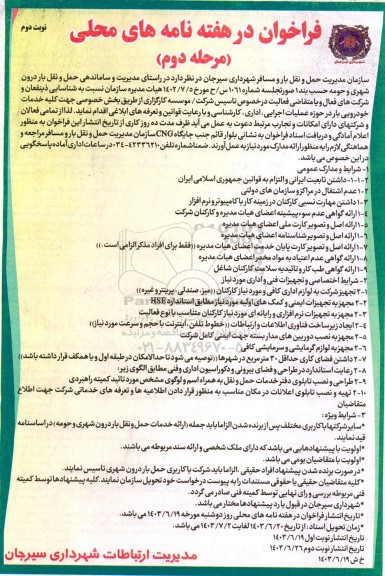 نوبت دوم
فراخوان در هفته نامه های محلی
(مرحله دوم)
سازمان مدیریت حمل و نقل بار و مسافر شهرداری سیرجان در نظر دارد در راستای مدیریت و ساماندهی حمل و نقل بار درون
شهری و حومه حسب بند ۱ صورتجلسه شماره ۱۰۶۱/س/ح مورخ ۱۴۰۲/۷/۵ هیات مدیره سازمان نسبت به شناسایی ذینفعان و
شرکت های فعال و یا متقاضی فعالیت در خصوص تاسیس شرکت / موسسه کارگزاری از طریق بخش خصوصی جهت کلیه خدمات
خودرویی بار در حوزه عملیات اجرایی، اداری، کارشناسی و با رعایت قوانین و تعرفه های ابلاغی اقدام نماید. لذا از تمامی فعالان
و شرکتهای دارای امکانات و تجارب مرتبط دعوت به عمل می آید ظرف مدت ده روز کاری از تاریخ انتشار این فراخوان به منظور
اعلام آمادگی و دریافت اسناد فراخوان به نشانی بلوار قائم جنب جایگاه CNG سازمان مدیریت حمل و نقل بار و مسافر مراجعه و
هماهنگی لازم را به منظور ارائه مدارک مورد نیاز به عمل آورند. ضمنا شماره تلفن ۴۲۲۳۶۲۱۰-۰۳۴ در ساعات اداری آماده پاسخگویی
در این خصوص می باشد.
۱- شرایط و مدارک عمومی
۱-۱- داشتن تابعیت ایرانی و التزام به قوانین جمهوری اسلامی ایران
۱-۲ عدم اشتغال در مراکز و سازمان های دولتی
۱-۳ داشتن مهارت نسبی کارکنان در زمینه کار با کامپیوتر و نرم افزار
۱-۴ ارائه گواهی عدم سوء پیشینه اعضای هیات مدیره و کارکنان شرکت
۱-۵ ارائه اصل و تصویر کارت ملی اعضای هیات مدیره
۱-۶ ارائه اصل و تصویر شناسنامه اعضای هیات مدیره
۱-۷ ارائه اصل و تصویر کارت پایان خدمت اعضای هیات مدیره ((فقط برای افراد مذکر الزامی است.))
۱-۸ ارائه گواهی عدم اعتیاد به مواد مخدر اعضای هیات مدیره
۱-۹ ارائه گواهی طب کار و تائیدیه سلامت کارکنان شاغل
۲- شرایط اختصاصی و تجهیزات فنی و اداری مورد نیاز:
۲-۱ تجهیز شرکت به لوازم اداری کافی و مورد نیاز کارکنان ((میز، صندلی، پرینتر و غیره))
۲-۲ مجهز به تجهیزات ایمنی و کمک های اولیه مورد نیاز مطابق استاندارد HSE
۲-۳ مجهز به تجهیزات نرم افزاری و رایانه ای مورد نیاز کارکنان متناسب با نوع فعالیت
۲-۴ ایجاد زیرساخت فناوری اطلاعات و ارتباطات ((خطوط تلفن، اینترنت با حجم و سرعت مورد نیاز))
۲-۵ مجهز به نصب دوربین های مدار بسته جهت ایمنی کامل شرکت
۲-۶ مجهز به لوازم گرمایشی و سرمایشی کافی
۲-۷ داشتن فضای کاری حداقل ۳۰ متر مربع در شهرها ((توصیه می شود تا حد الامکان در طبقه اول و یا همکف قرار داشته باشد))
۲-۸ رعایت استاندارد در طراحی و فضای بیرونی و دکوراسیون اداری و فنی مطابق الگوی زیر:
۲-۹ طراحی و نصب تابلوی دفتر خدمات حمل و نقل به همراه اسم و لوگوی مشخص مورد تائید کمیته راهبردی
۲-۱۰ تهیه و نصب تابلوی اعلانات در مکان مناسب به منظور قرار دادن اطلاعیه ها و تعرفه های خدماتی شرکت جهت اطلاع
متقاضیان
۳- شرایط ویژه:
*سایر شرکتها با کاربری مختلف پس از زبنده شدن الزاما باید جمله (ارائه خدمات حمل و نقل بار درون شهری و حومه) در اساسنامه
قید نمایند.
*اولویت با پیشنهادهایی می باشد که دارای ملک شخصی و ارائه سند مربوطه می باشند.
*اولویت با متقاضیان بومی می باشد.
*در صورت برنده شدن پیشنهاد افراد حقیقی، الزاما باید شرکت با کاربری حمل بار درون شهری تاسیس نمایند.
*کلیه متقاضیان حقیقی یا حقوقی مستندات را به پیوست درخواست خود تحویل سازمان نمایند. کلیه پیشنهادها توسط کمیته
فنی مربوطه بررسی و رای نهایی توسط کمیته فنی صادر می گردد.
*شهرداری سیرجان در قبول یا رد پیشنهادها مختار می باشد.
*تاریخ انتشار فراخوان در هفته نامه های محلی روز دوشنبه مورخه ۱۴۰۳/۶/۱۹ می باشد.
*زمان تحویل اسناد: از تاریخ ۱۴۰۳/۶/۲۰ لغایت ۱۴۰۳/۷/۲ می باشد.
تاریخ انتشار نوبت اول ۱۴۰۳/۶/۱۹
تاریخ انتشار نوبت دوم ۱۴۰۳/۶/۲۶
خ ش ۱۴۰۳/۶/۱۹
مدیریت ارتباطات شهرداری سیرجان
۰۲۱-۸۸۳۴۹۶۷۰